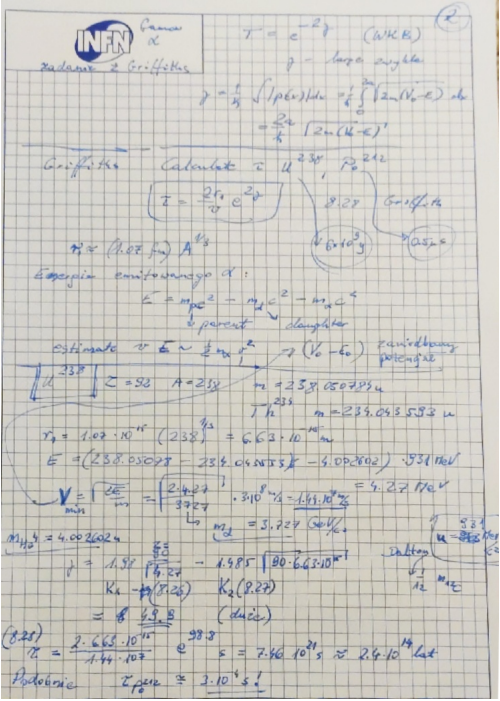 2
INFN
Gamow
α
zadanie z Griffiths
T = e^-2γ (WKB)
γ - large zwykle
γ = 1/ħ ∫|p(x)|dx = 1/ħ ∫₀^2a √2m(V₀-E) dx
= 2a/ħ √2m(V₀-E)
Griffiths Calculate τ U^238, Po^212
τ = 2r₁/v e^2γ 8.28 Griffiths
6×10^9 y 0.5μs
r₁ ≈ (1.07 fm) A^1/3
Energia emitowanego α:
E = m_p c² - m_d c² - m_α c²
parent daughter
estimate v E ~ ½ m_α v² → (V₀-E₀) zaniedbany potencjał
U^238 Z = 92 A = 238 m = 238.050784u
Th^234 m = 234.043593 u
r₁ = 1.07·10^-15 (238)^1/3 = 6.63·10^-15 m
E = (238.05078 - - 4.002602)·931 MeV
= 4.27 MeV
V = √2E/m = √2·4.27/3727 ·3·10^8 m/s = 1.44·10^7 m/s
min
m_α = 3.727 GeV/c²
m_He4 = 4.002602u
u = 931 MeV/c²
Dalton
1/12 m 12C
γ = 1.98 90/√4.27 - 1.485 √90·6.63·10^-15
K₁ (8.26) K₂ (8.27)
= 49.3 (duże)
(8.28)
τ = 2·6.63·10^-15/1.44·10^7 e^98.8 s = 7.46 10^21 s ≈ 2.4·10^14 lat
Podobnie τ_Po212 ≅ s!